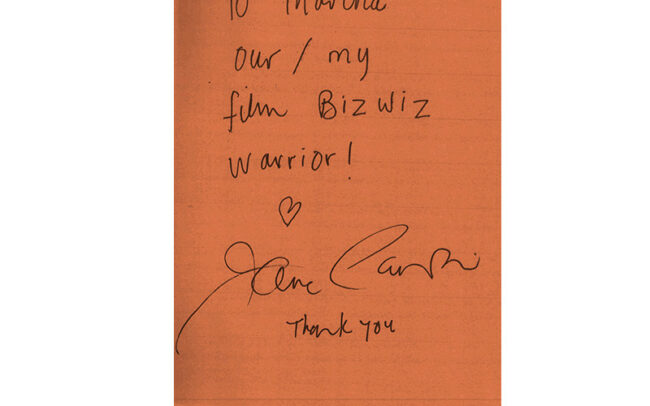 To
our / my
film Biz wiz
warrior!
♡
Jane Campion
Thank you